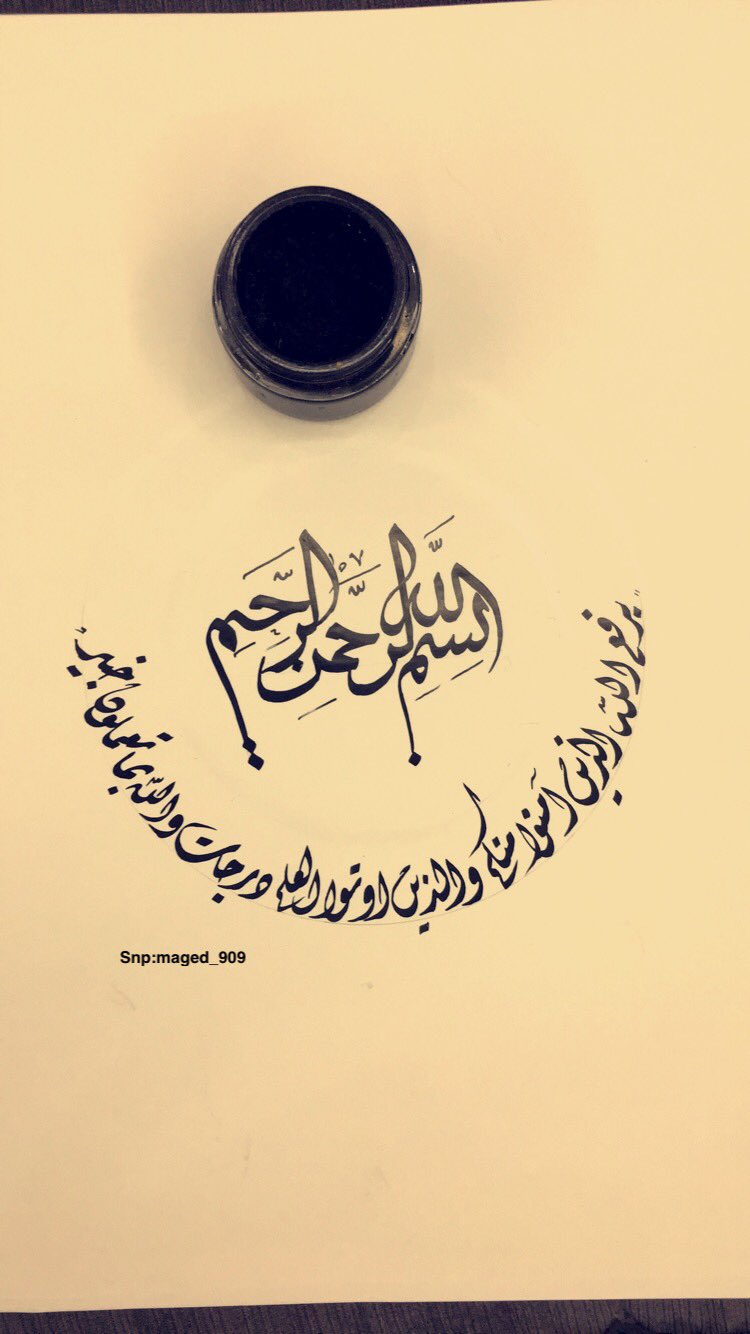 بسم اللّه الرّحمن الرّحيم
يرفع اللّه الذين آمنوا منكم والذين اوتوا العلم درجات واللّه بما تعملون خبير
Snp:maged_909